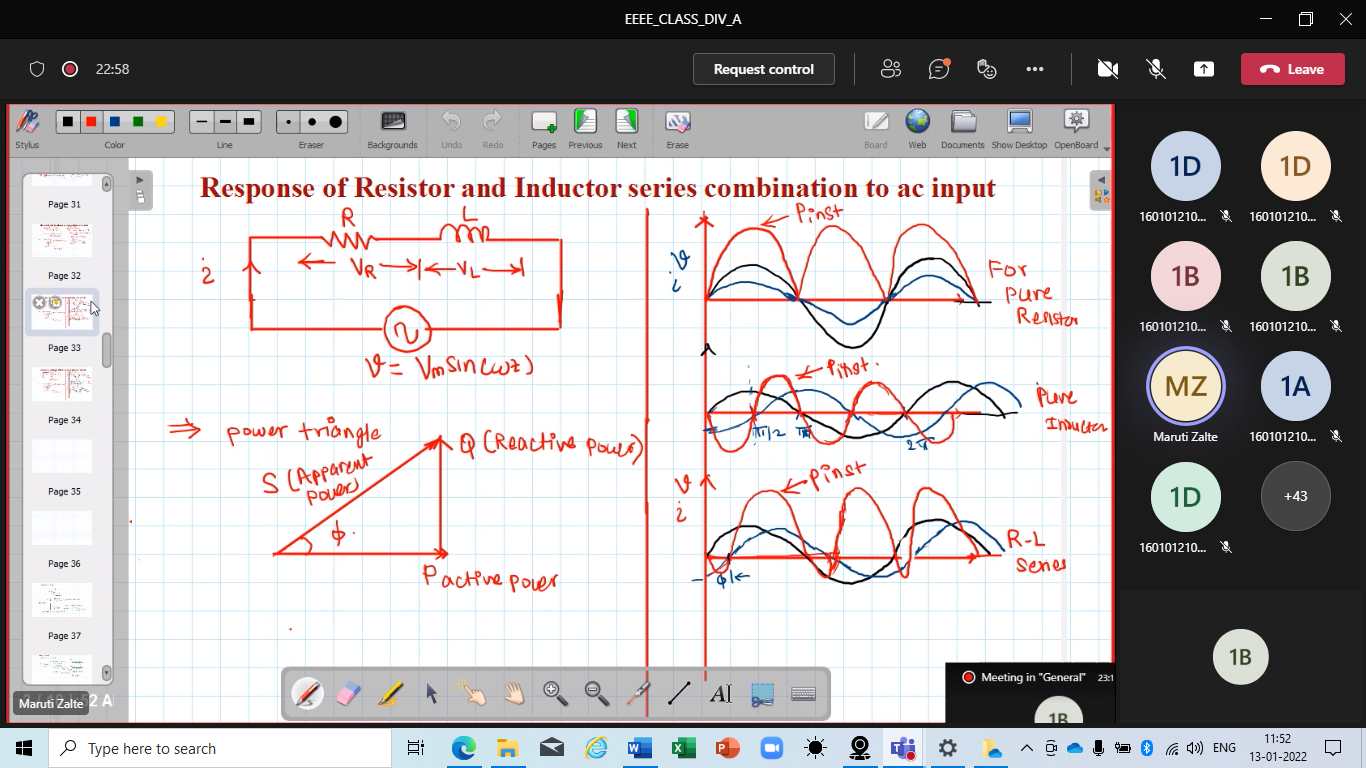 EEEE_CLASS_DIV_A
22:58
Request control
Leave
Stylus
Color
Line
Eraser
Backgrounds
Undo
Redo
Pages
Previous
Next
Erase
Board
Web
Documents
Show Desktop
OpenBoard
Page 31
Page 32
Page 33
Page 34
Page 35
Page 36
Page 37
Response of Resistor and Inductor series combination to ac input
R
L
i
VR
VL
v = Vm sin(ωt)
⇒ power triangle
S (Apparent
power)
Q (Reactive power)
ϕ
P active power
Pinst
v
i
For
Pure
Resistor
Pinst.
π/2
π
2π
Pure
Inductor
v
i
Pinst
ϕ
R-L
Series
1D
160101210...
1D
160101210...
1B
160101210...
1B
160101210...
MZ
Maruti Zalte
1A
160101210...
1D
160101210...
+43
1B
Maruti Zalte
AI
Meeting in "General"
23:1
1B
Type here to search
ENG
11:52
13-01-2022